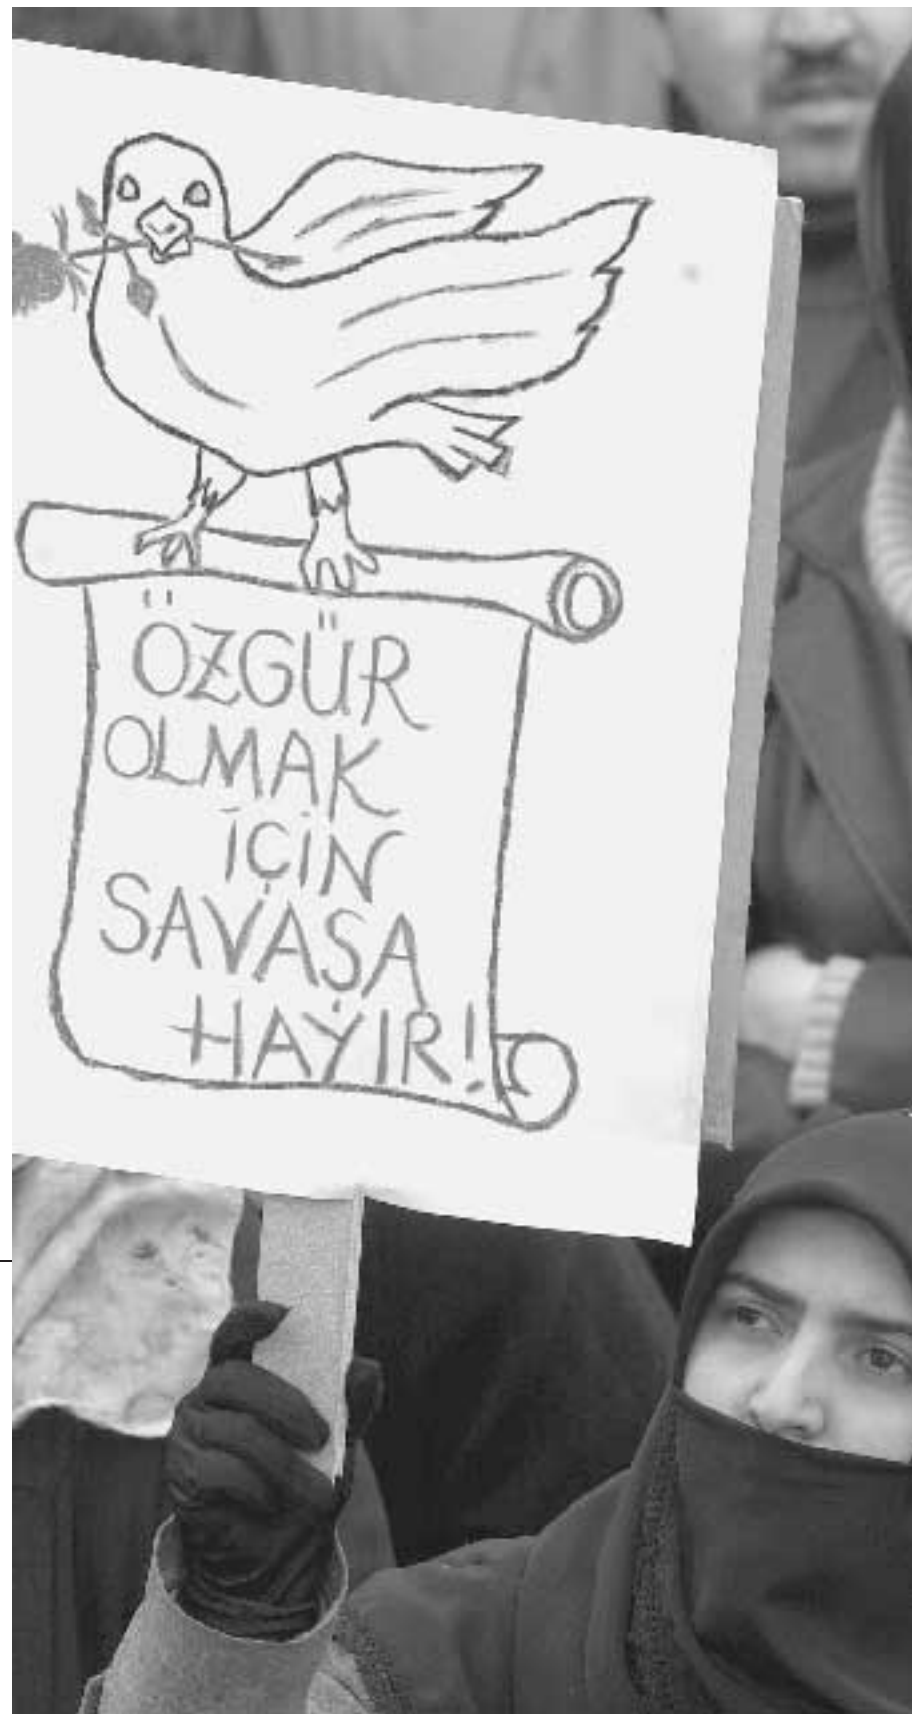 ÖZGÜR
OLMAK
İÇİN
SAVAŞA
HAYIR!